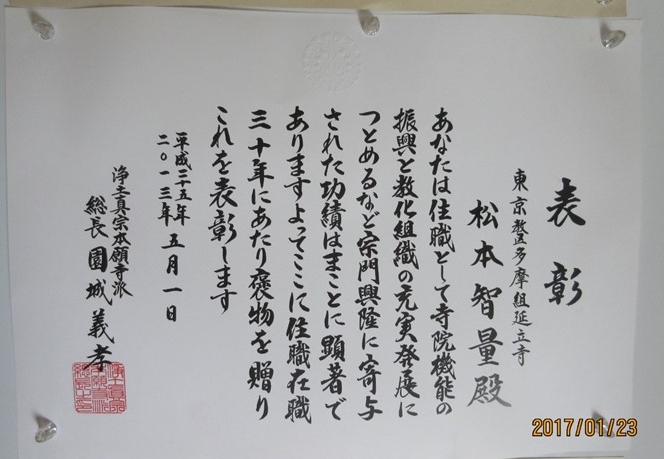 表彰
東京教区多摩組延立寺
松本智量殿
あなたは住職として寺院機能の
振興と教化組織の充実発展に
つとめるなど宗門興隆に寄与
された功績はまことに顕著で
ありますよってここに住職在職
三十年にあたり褒物を贈り
これを表彰します
平成二十五年
二〇一三年 五月一日
浄土真宗本願寺派
総長 園城義孝
2017/01/23